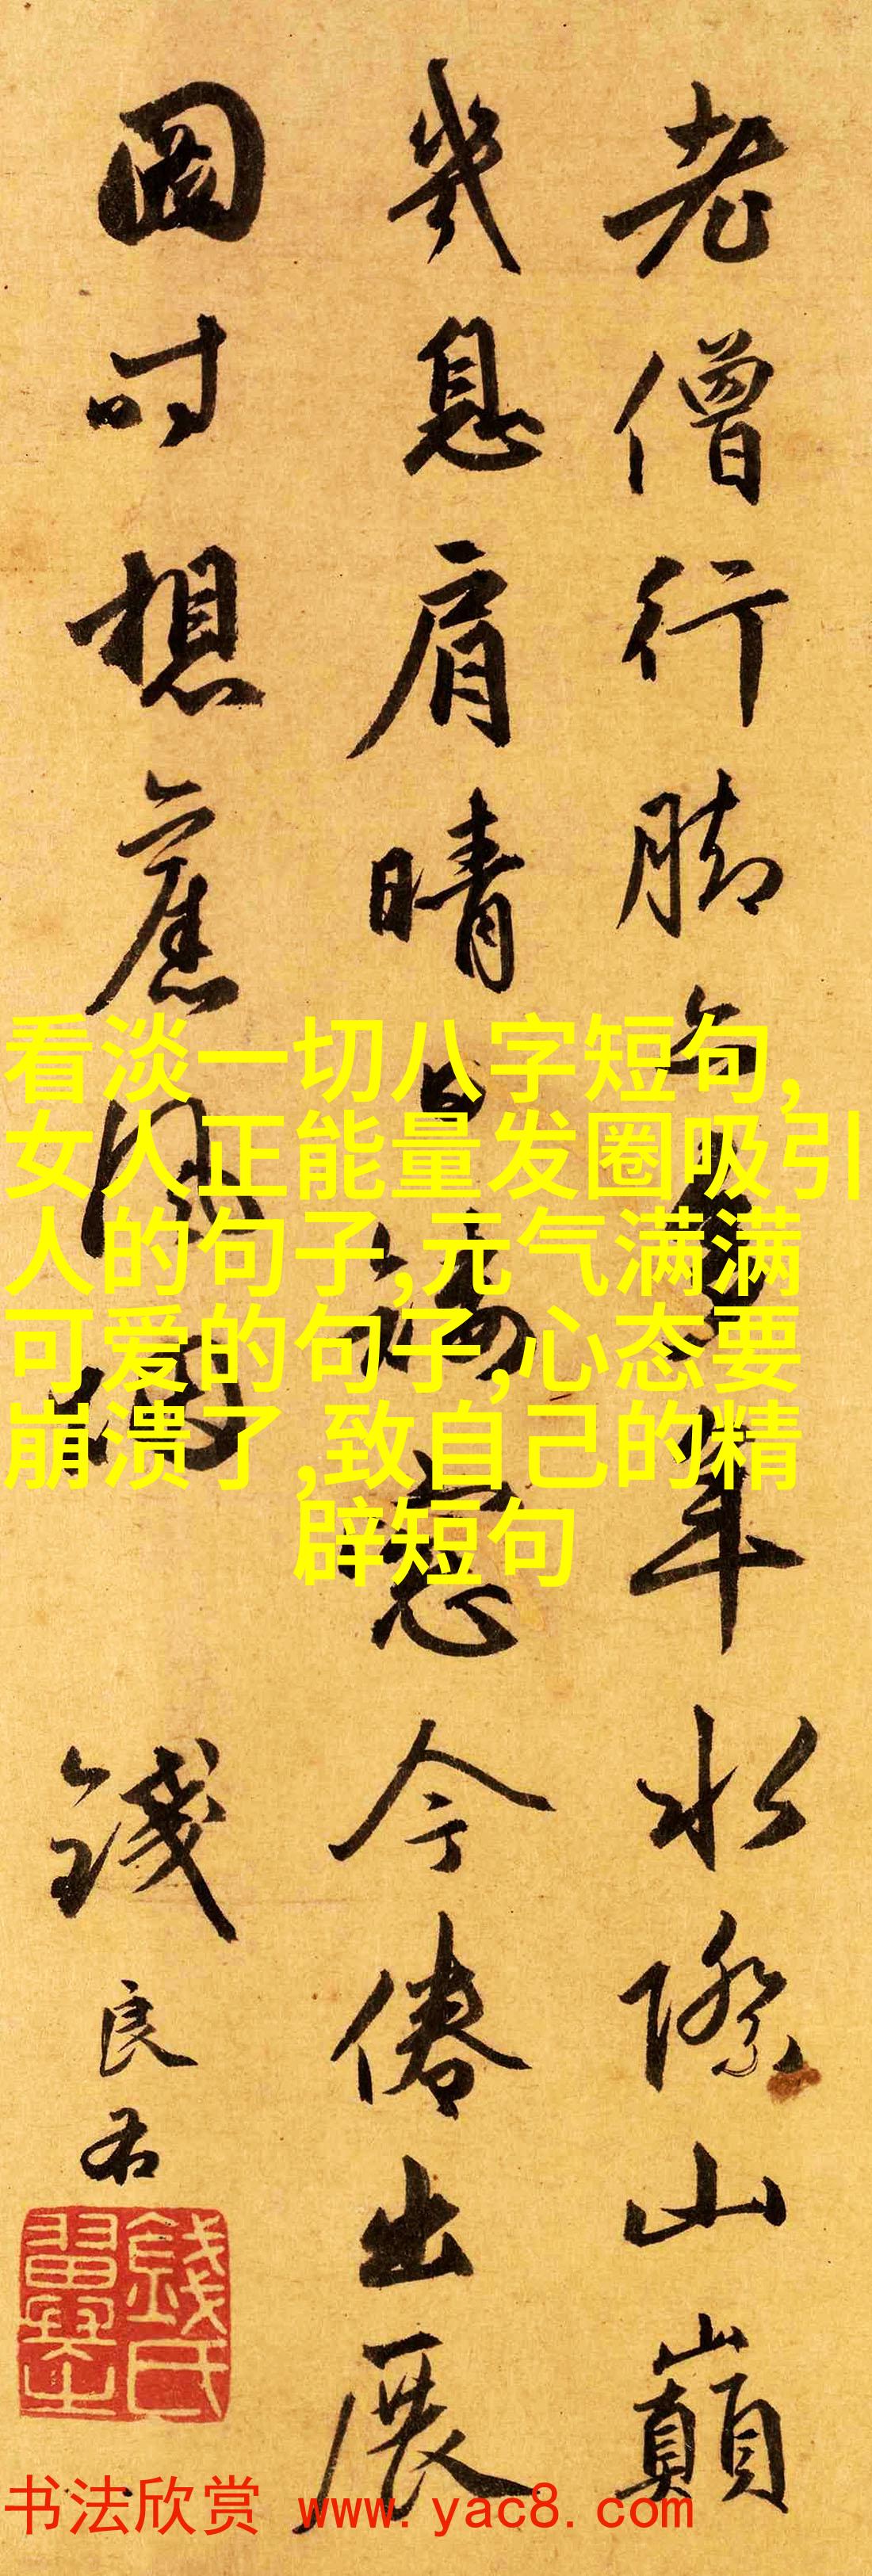 老僧行脚年水際山巔
幾息肩晴日窓今倦出展
圖时想舊
錢良右
錢氏翼之
看淡一切八字短句,
女人正能量发圈吸引
人的句子,元气满满
可爱的句子,心态要
崩溃了,致自己的精
辟短句
书法欣赏 www.yac8.com